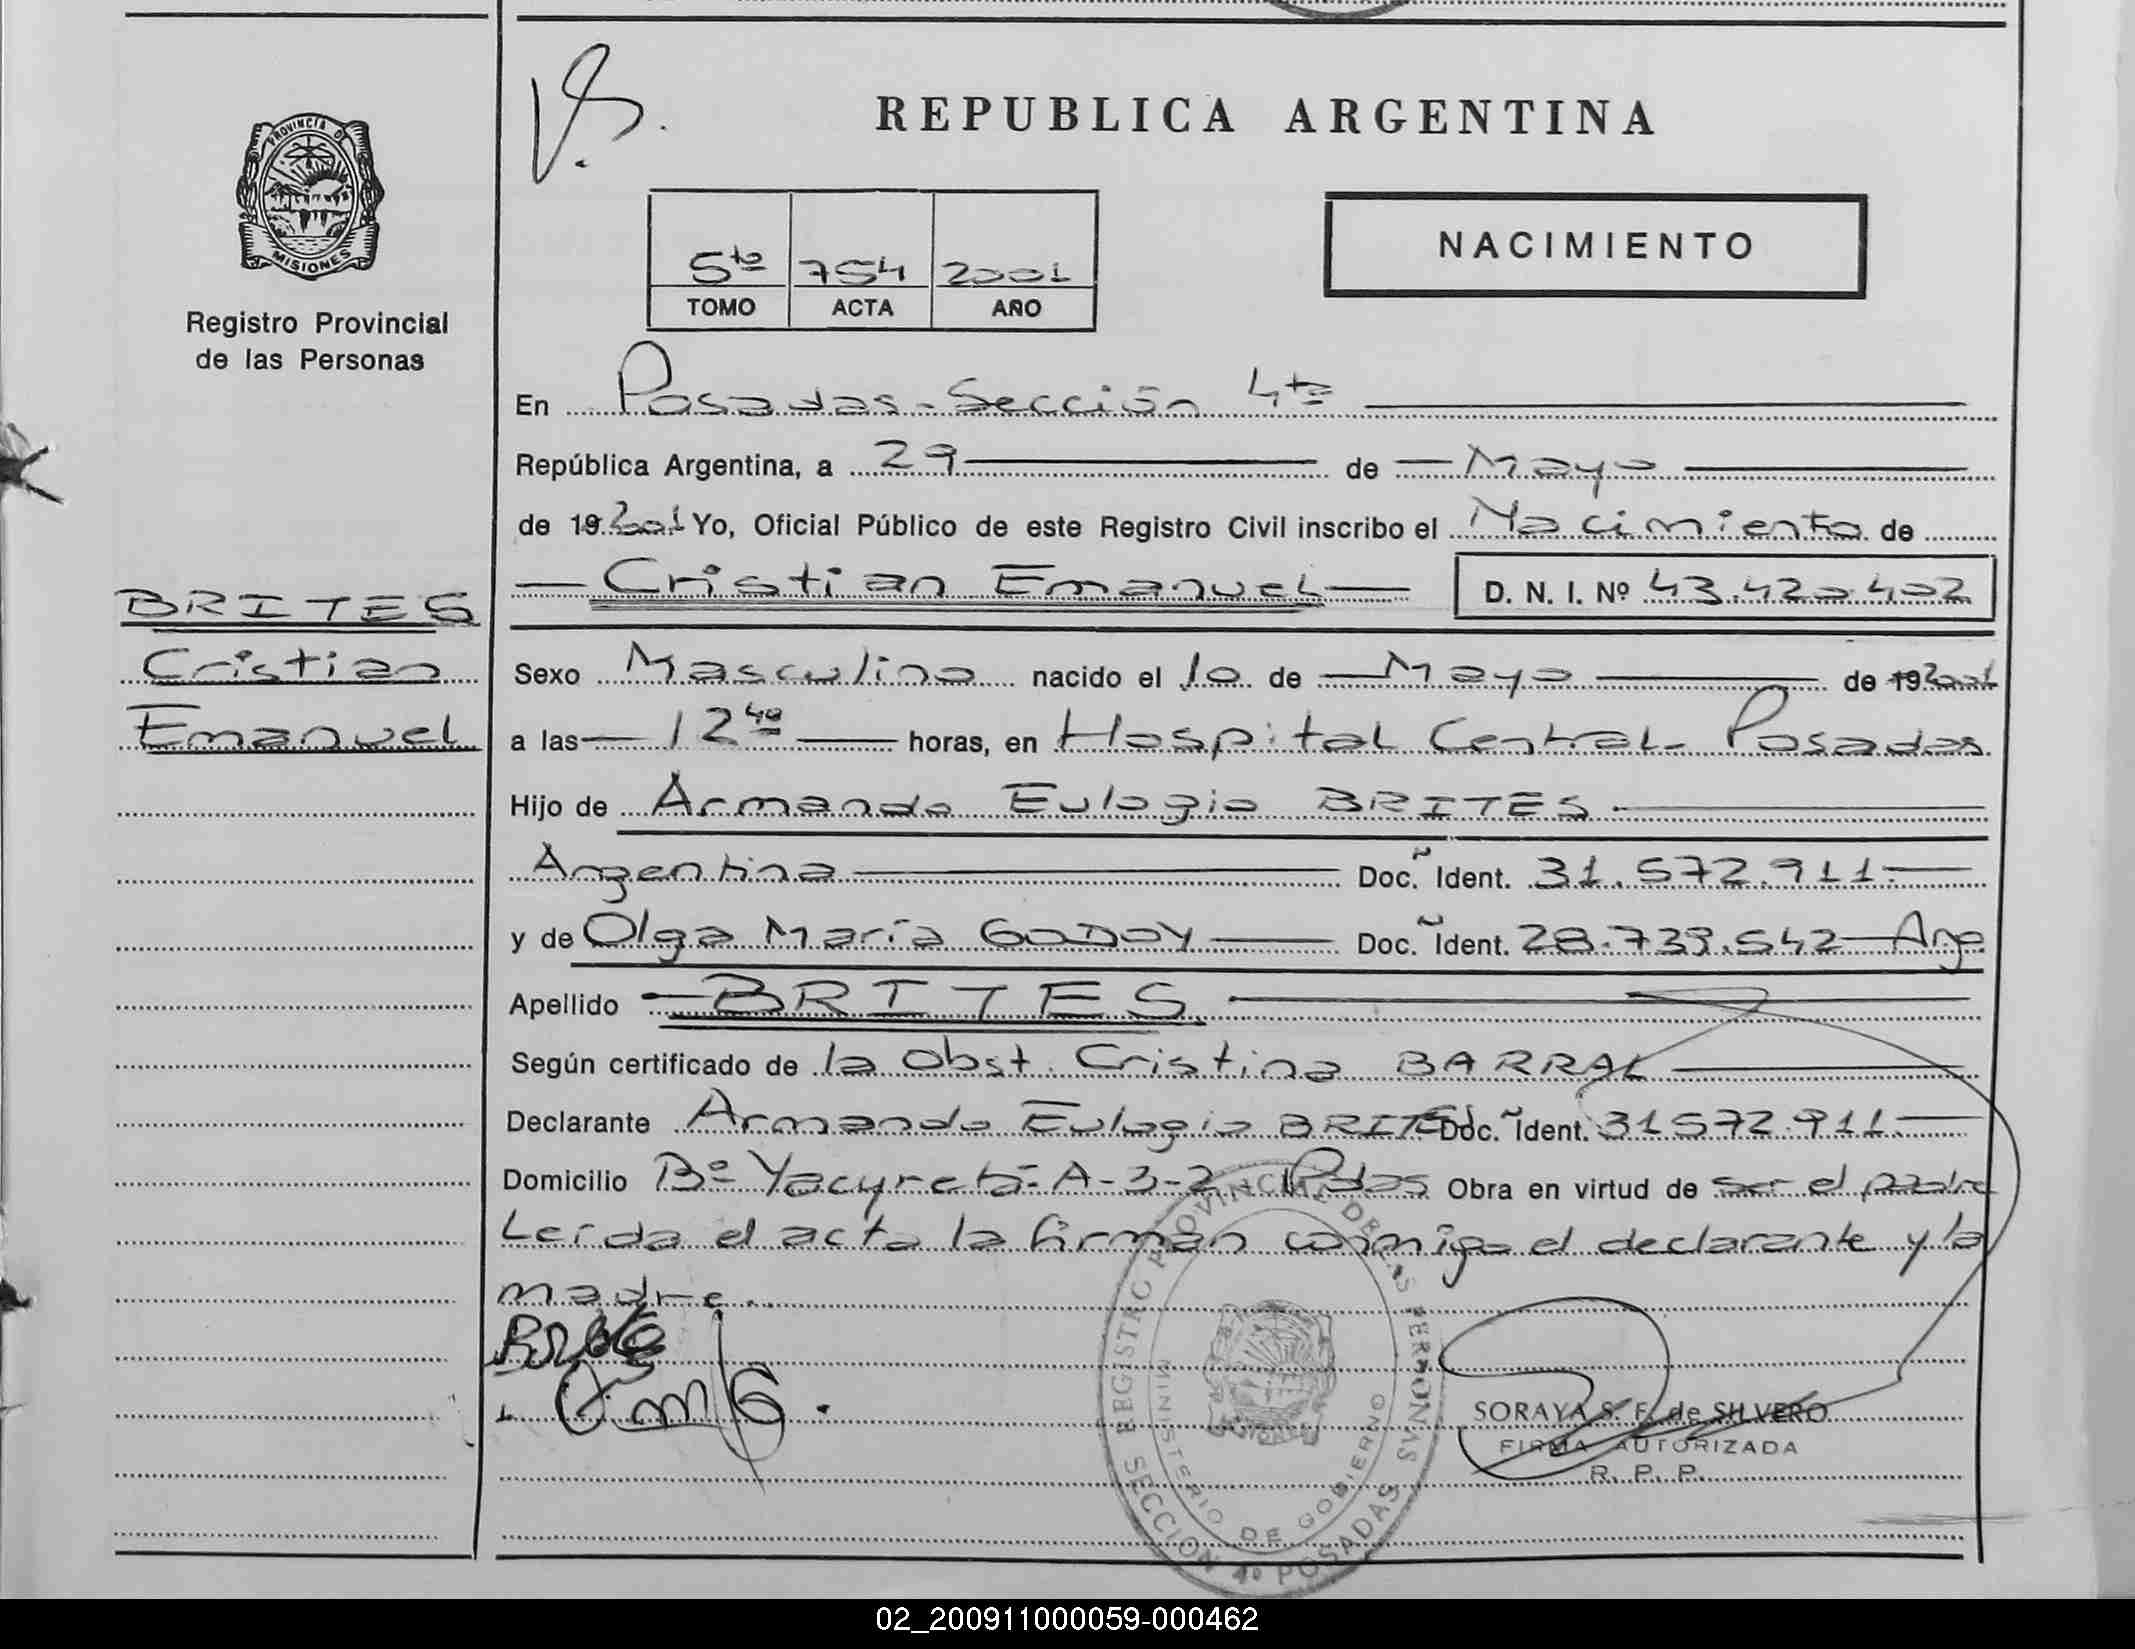 REPUBLICA ARGENTINA
PROVINCIA DE
MISIONES
Registro Provincial
de las Personas
5to 754 2001
TOMO ACTA AÑO
NACIMIENTO
En Posadas-Sección 4ta
República Argentina, a 29 de Mayo
de 19 2001 Yo, Oficial Público de este Registro Civil inscribo el Nacimiento de
Cristian Emanuel D. N. I. Nº 43.420.402
BRITES
Cristian
Emanuel
Sexo Masculino nacido el 10 de Mayo de 19 2001
a las 12 40 horas, en Hospital Central- Posadas
Hijo de Armando Eulogio BRITES
Argentina Doc. Ident. 31.572.911.
y de Olga María GODOY Doc. Ident. 28.739.542 Arg.
Apellido BRITES
Según certificado de la Obst. Cristina BARRAL
Declarante Armando Eulogio BRITES Doc. Ident. 31572.911.
Domicilio Bº Yacyretá-A-3-2 Pdas Obra en virtud de ser el padre
Leída el acta la firman conmigo el declarante y la
madre..
REGISTRO PROVINCIAL DE LAS PERSONAS
MINISTERIO DE GOBIERNO
SECCION 4º POSADAS
SORAYA S. F. de SILVERO
FIRMA AUTORIZADA
R. P. P.
02_200911000059-000462